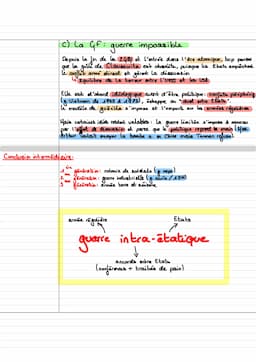 c) La GF : guerre impossible
Depuis la fin de la 2GM et l'entrée dans l'ère atomique,
que la de Clausewitz est obsolète, puisque les Etats empêchent
le conflit armé direct et gèrent la dissuasion
équilibre de la terreur entre l'URSS et les USA
Elle est d'abord idéologique avant d'être politique : conflits périphériques
(Vietnam de 1955 à 1975), échappe au "duel entre Etats".
le modèle de guérilla s'impose et l'emporte sur les armées régulières
Mais certaines idées restent valables : la guerre limitée s'impose à nouveau
par l'effet de dissuasion et parce que le politique reprend la main
Arthur voulait la bombe a en Chine mais Truman refuse).
Conclusion intermédiaire :
1ère génération : colonnes de soldats
2ème génération : guerre industrielle
3ème génération :
armée régulière
Etats
guerre intra-étatique
accords entre Etats
(conférences + traités de paix)